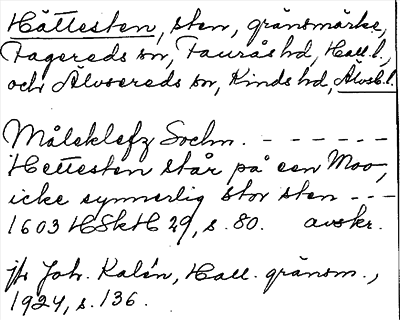 Hättesten, sten, gränsmärke,
Fagereds sn, Faurås hd, Hall.l.,
och Älvsereds sn, Kinds hd, Älvsb.l.
Måleklefz Sochn. - - - - - - -
Hettesten står på een Moo,
icke synnerlig stor sten - - -
1603 HSkH 29, s. 80. avskr.
jfr Joh. Kalén, Hall. gränsm.,
1924, s. 136.